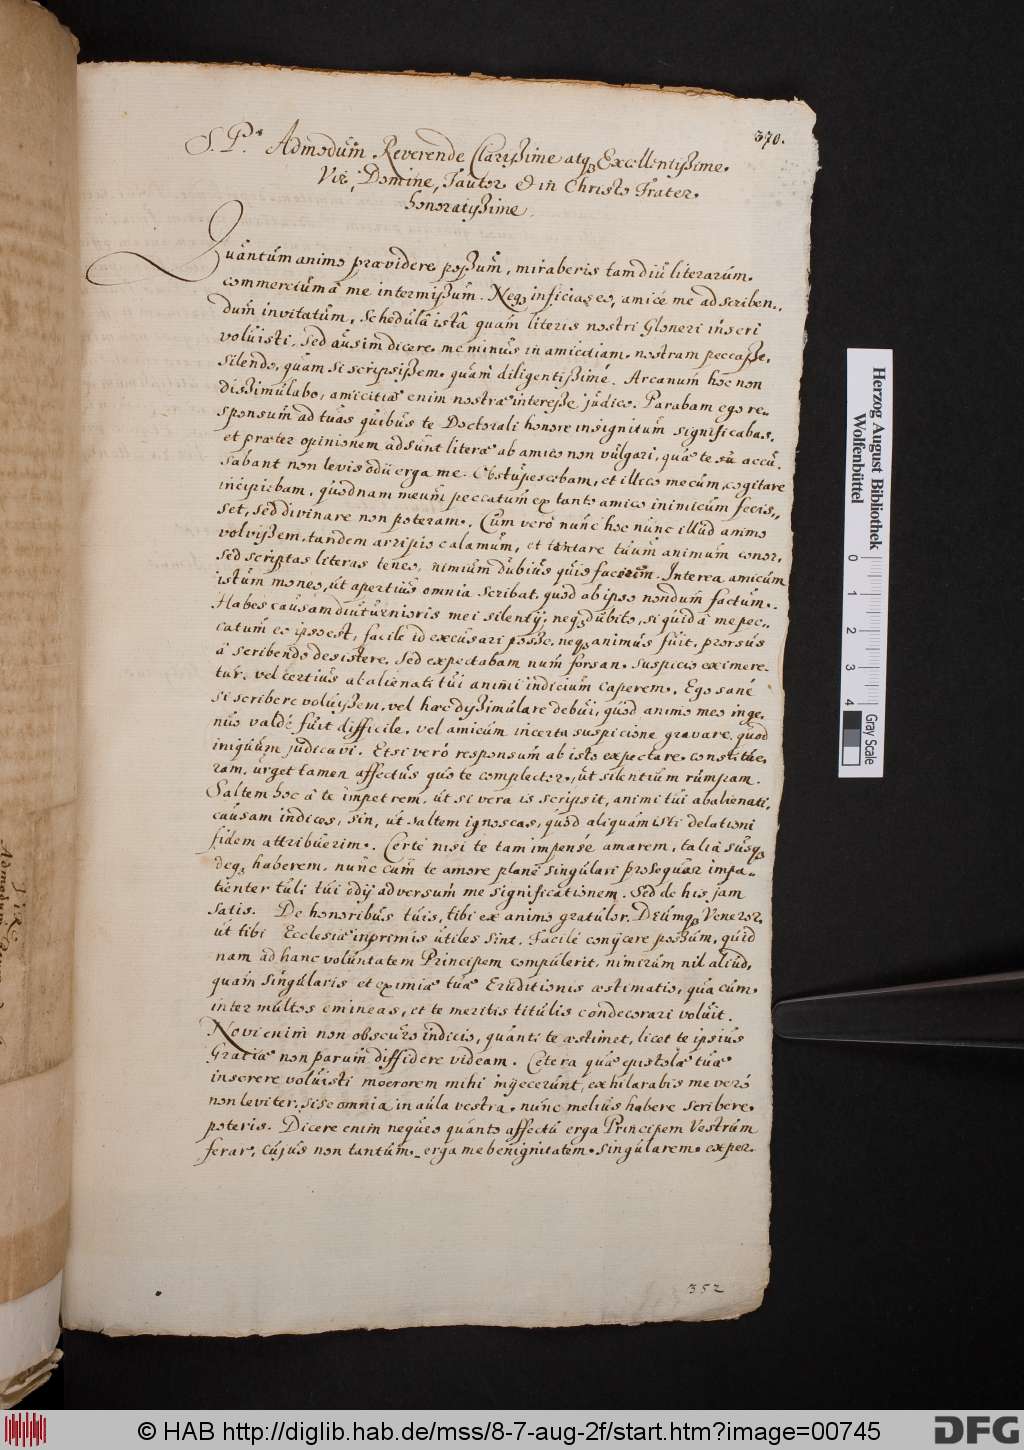 370.
S. P. Admodùm Reverende Clarißime atq; Excellentißime
Vir, Domine, Fautor et in Christo Frater
honoratißime.
Quantùm animo prævidere poßum, miraberis tam diù literarùm
commerciùm â me intermißùm. Neq; inficias eo, amicé me ad scriben-
dùm invitatùm, schedùlâ istâ quàm literis nostri Gloneri inseri
volùisti, sed aùsim dicere me minùs in amicitiam nostram peccaße,
silendo, qùam si scripsißem qùàm diligentißimé. Arcanùm hoc non
dissimùlabo, amicitiæ enim nostræ intereße jùdico. Parabam ego re-
sponsùm ad tùas qùibùs te Doctorali honore insignitùm significabas,
et præter opinionem adsùnt literæ ab amico non vùlgari, qùæ te accù-
sabant non levis odii erga me. Obstùpescebam, et illico mecùm cogitare
incipiebam, qùodnam meùm peccatùm ex tanto amico inimicùm fecis-
set, sed divinare non poteram. Cùm verò nùnc hoc nùnc illùd animo
volvissem, tandem arripio calamùm, et tentare tùùm animùm conor,
sed scriptas literas teneo, nimiùm dùbiùs qùid facerem. Interea amicùm
istùm moneo, ùt apertiùs omnia scribat, qùod ab ipso nondùm factùm.
Habes caùsam diùtùrnioris mei silentij, neq; dùbito, si qùid â me pec-
catùm eo ipso est, facile id excùsari poße, neq; animùs fùit, prorsùs
â scribendo desistere, sed expectabam nùm forsan suspicio eximere-
tùr, vel certiùs abalienati tùi animi indiciùm caperem. Ego sané
si scribere volùissem, vel hoc dyßimùlare debùi, qùod animo meo inge-
nùo valdé fùit difficile, vel amicùm incerta suspicione gravare, qùod
iniqùùm jùdicavi. Etsi verò responsùm ab isto expectare constitùe-
ram, ùrget tamen affectùs qùo te complector, ùt silentiùm rùmpam.
Saltem hoc â te impetrem, ùt si vera is scripsit, animi tùi abalienati
caùsam indices, sin, ùt saltem ignoscas, qùod aliqùàm isti delationi
fidem attribùerim. Certé nisi te tam impensé amarem, talia sùsq;
deq; haberem, nùnc cùm te amore plané singùlari proseqùar impa-
tienter tùli tùi odij adversùm me significationem. Sed de his jam
satis. De honoribùs tùis, tibi ex animo gratùlor, DEùmq; Veneror,
ùt tibi Ecclesiæ inprimis ùtiles sint. Facilé conijcere poßùm, qùid
nam ad hanc volùntatem Principem compùlerit, nimirùm nil aliùd,
qùàm singùlaris et eximiæ tùæ Erùditionis æstimatio, qùa cùm
inter mùltos emineas, et te meritis titùlis condecorari volùit.
Novi enim non obscùro indicio, qùanti te æstimet, licet te ipsiùs
Gratiæ non parùm diffidere videam. Cetera qùæ epistolæ tùæ
inserere volùisti moerorem mihi injecerùnt, exhilarabis me verò
non leviter, si se omnia in aùla vestra nùnc meliùs habere scribere
poteris. Dicere enim neqùeo qùanto affectù erga Principem Vestrùm
ferar, cùjùs non tantùm erga me benignitatem singùlarem exper-
352
Herzog August Bibliothek
Wolfenbüttel
0 1 2 3 4
Gray Scale
© HAB http://diglib.hab.de/mss/8-7-aug-2f/start.htm?image=00745
DFG